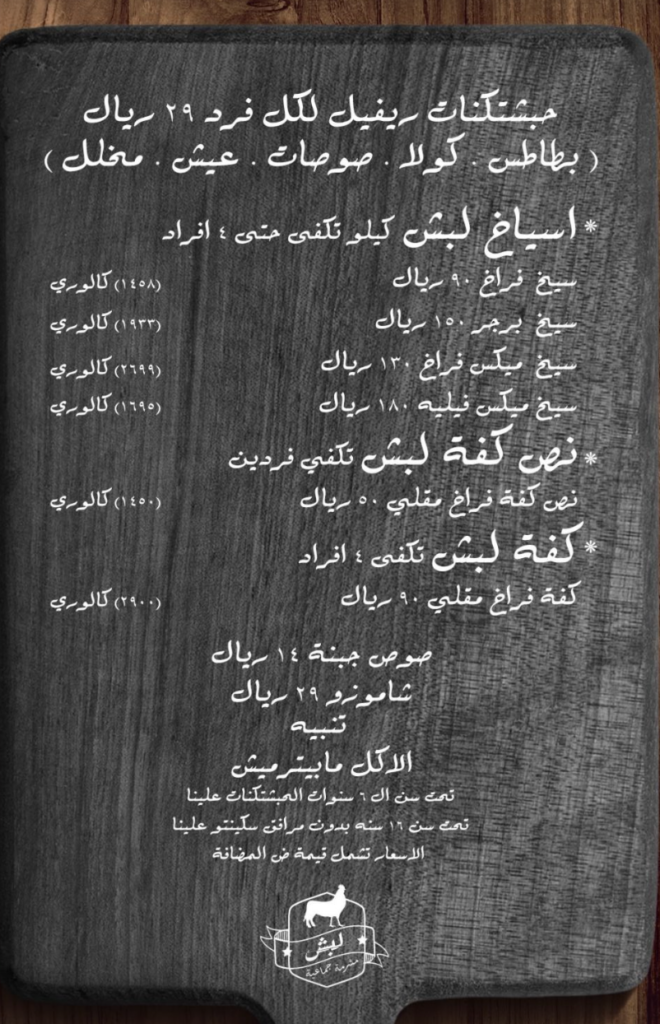 حبشتكنات ريفيل للكل فرد ٢٩ ريال
( بطاطس . كولا . صوصات . عيش . مخلل )
* اسياخ لبش كيلو تكفى حتى ٤ افراد
سيخ فراخ ٩٠ ريال (١٤٥٨) كالوري
سيخ برجر ١٥٠ ريال (١٩٣٣) كالوري
سيخ ميكس فراخ ١٣٠ ريال (٢٦٩٩) كالوري
سيخ ميكس فيليه ١٨٠ ريال (١٦٩٥) كالوري
* نص كفة لبش تكفي فردين
نص كفة فراخ مقلي ٥٠ ريال (١٤٥٠) كالوري
* كفة لبش تكفى ٤ افراد
كفة فراخ مقلي ٩٠ ريال (٢٩٠٠) كالوري
صوص جبنة ١٤ ريال
شاموزو ٢٩ ريال
تنبيه
الاكل مابيترميش
تحت سن ال ٦ سنوات الحبشتكنات علينا
تحت سن ١٢ سنه بدون مرافق سكينتو علينا
الاسعار تشمل قيمة ض المضافة
لبش
مفرمة جماعية